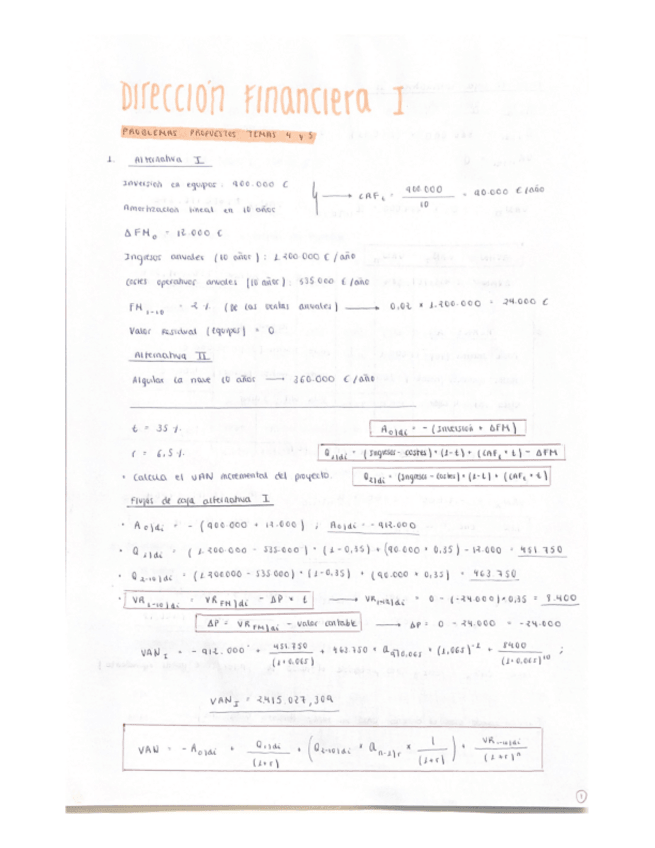 Dirección Financiera I
PROBLEMAS PROPUESTOS TEMAS 4 y 5
1. Alternativa I
Inversión en equipos: 900.000 €
Amortización lineal en 10 años
→ CAF₁ = 900.000 / 10 = 90.000 €/año
Δ FM₀ = 12.000 €
Ingresos anuales (10 años): 1.200.000 €/año
Costes operativos anuales (10 años): 535.000 €/año
FM₁₋₁₀ = 2 %. (De las ventas anuales) → 0,02 × 1.200.000 = 24.000 €
Valor Residual (equipos) = 0
Alternativa II
Alquilar la nave 10 años → 360.000 €/año
t = 35 %.
A₀)di = - (Inversión + ΔFM)
r = 6,5 %.
Q₁)di = (Ingresos - costes) · (1-t) + (CAF₁ · t) - ΔFM
· Calcula el VAN incremental del proyecto.
Q₂)di = (Ingresos - costes) · (1-t) + (CAF₁ · t)
Flujos de caja alternativa I
· A₀)di = - (900.000 + 12.000) ; A₀)di = - 912.000
· Q₁)di = (1.200.000 - 535.000) · (1-0,35) + (90.000 · 0,35) - 12.000 = 451.750
· Q₂₋₁₀)di = (1.200000 - 535.000) · (1-0,35) + (90.000 · 0,35) = 463.750
· VR₁₋₁₀)di = VR FM)di - ΔP × t → VR₁₋₁₀)di = 0 - (-24.000)·0,35 = 8.400
ΔP = VR FM)di - valor contable → ΔP = 0 - 24.000 = -24.000
VAN I = - 912.000 + 451.750 / (1+0,065) + 463.750 · a₉⅂0,065 · (1,065)⁻¹ + 8400 / (1+0,065)¹⁰ ;
VAN I = 2415.027,309
VAN = - A₀)di + Q₁)di / (1+r) + (Q₂₋₁₀)di · a n-1⅂r × 1 / (1+r)) + VR₁₋₁₀)di / (1+r)ⁿ
1